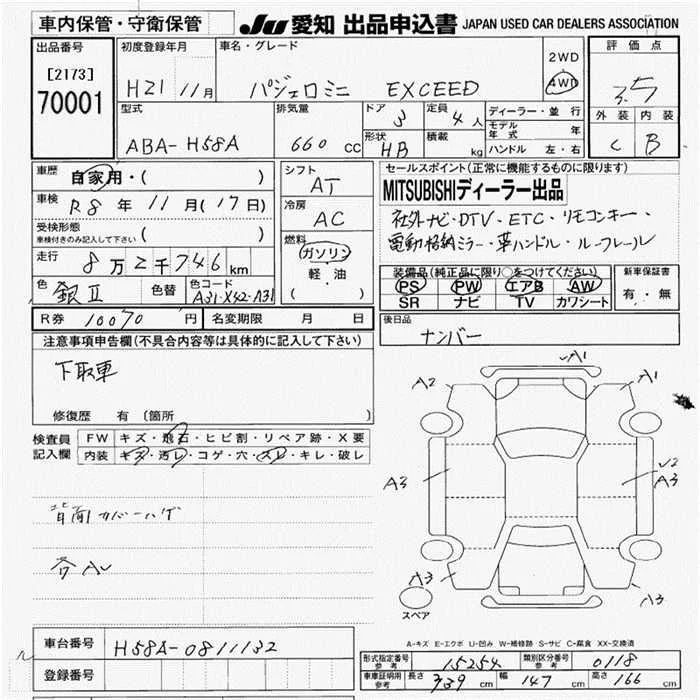 車内保管・守衛保管 JU 愛知 出品申込書 JAPAN USED CAR DEALERS ASSOCIATION
出品番号 [2173] 70001
初度登録年月 H21 11月
車名・グレード パジェロミニ EXCEED
2WD 4WD
評価点 3.5
外装 内装
C B
型式 ABA-H58A
排気量 660 CC
ドア 3
形状 HB
定員 4人
積載 kg
ディーラー・並行
モデル年式 年
ハンドル 左・右
車歴 自家用・( )
車検 R8年 11月(17日)
受検形態
車検付きのみ記入して下さい ( )
走行 8万2千746km
色 銀II 色替 色コード A31-X42-A31
シフト AT
冷房 AC
燃料 ガソリン
軽・油
( )
セールスポイント(正常に機能するものに限ります)
MITSUBISHIディーラー出品
社外ナビ・DTV・ETC・リモコンキー・
電動格納ミラー・革ハンドル・ルーフレール
装備品(純正品に限り○をつけてください)
PS PW エアB AW
SR ナビ TV カワシート
新車保証書
有・無
R券 10070円 名変期限 月 日
後日品
ナンバー
注意事項申告欄(不具合内容等は具体的に記入して下さい)
下取車
修復歴 有 〔箇所
検査員記入欄
FW キズ・飛石・ヒビ割・リペア跡・X要
内装 キズ・汚レ・コゲ・穴・スレ・キレ・破レ
背面カバーハゲ
各AU
A1
A2 A1
A3 √2
A3
A3 A3
スペア
A-キズ E-エクボ U-凹み W-補修跡 S-サビ C-腐食 XX-交換済
車台番号 H58A-0811132
登録番号
形式指定番号 参考 15254 類別区分番号 参考 0118
車庫証明用 参考 長さ 339cm 幅 147cm 高さ 166cm